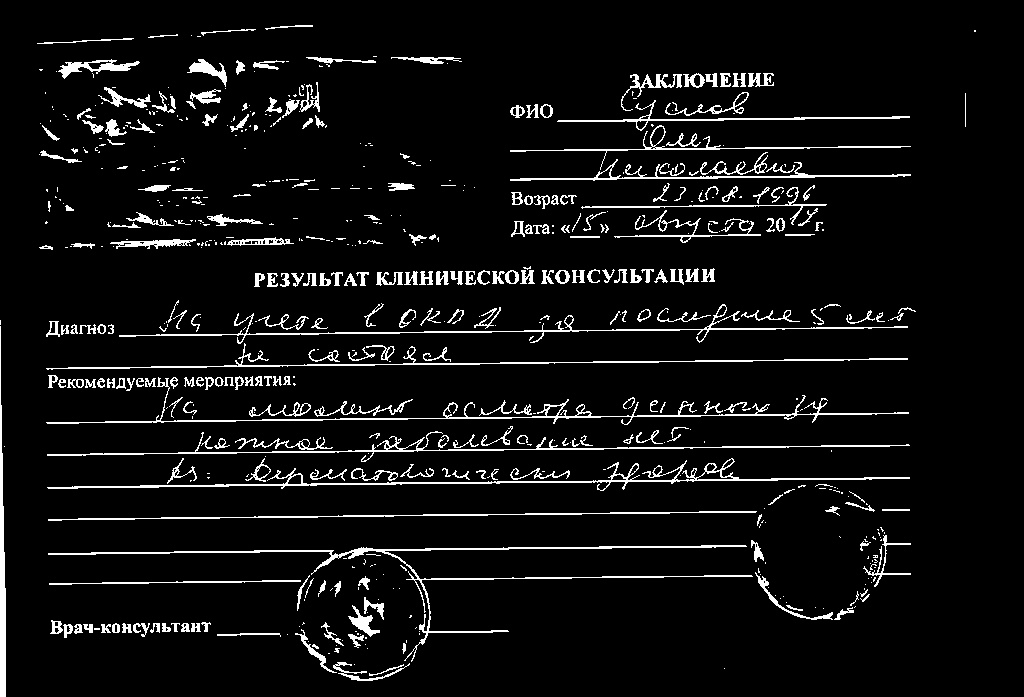 ЗАКЛЮЧЕНИЕ
ФИО Суслов
Олег
Николаевич
Возраст 23.08.1996
Дата: «15» августа 2017г.
РЕЗУЛЬТАТ КЛИНИЧЕСКОЙ КОНСУЛЬТАЦИИ
Диагноз На учете в ОКВД за последние 5 лет
не состоял
Рекомендуемые мероприятия:
На момент осмотра данных за
кожное заболевание нет.
Ds: Дерматологически здоров
Врач-консультант